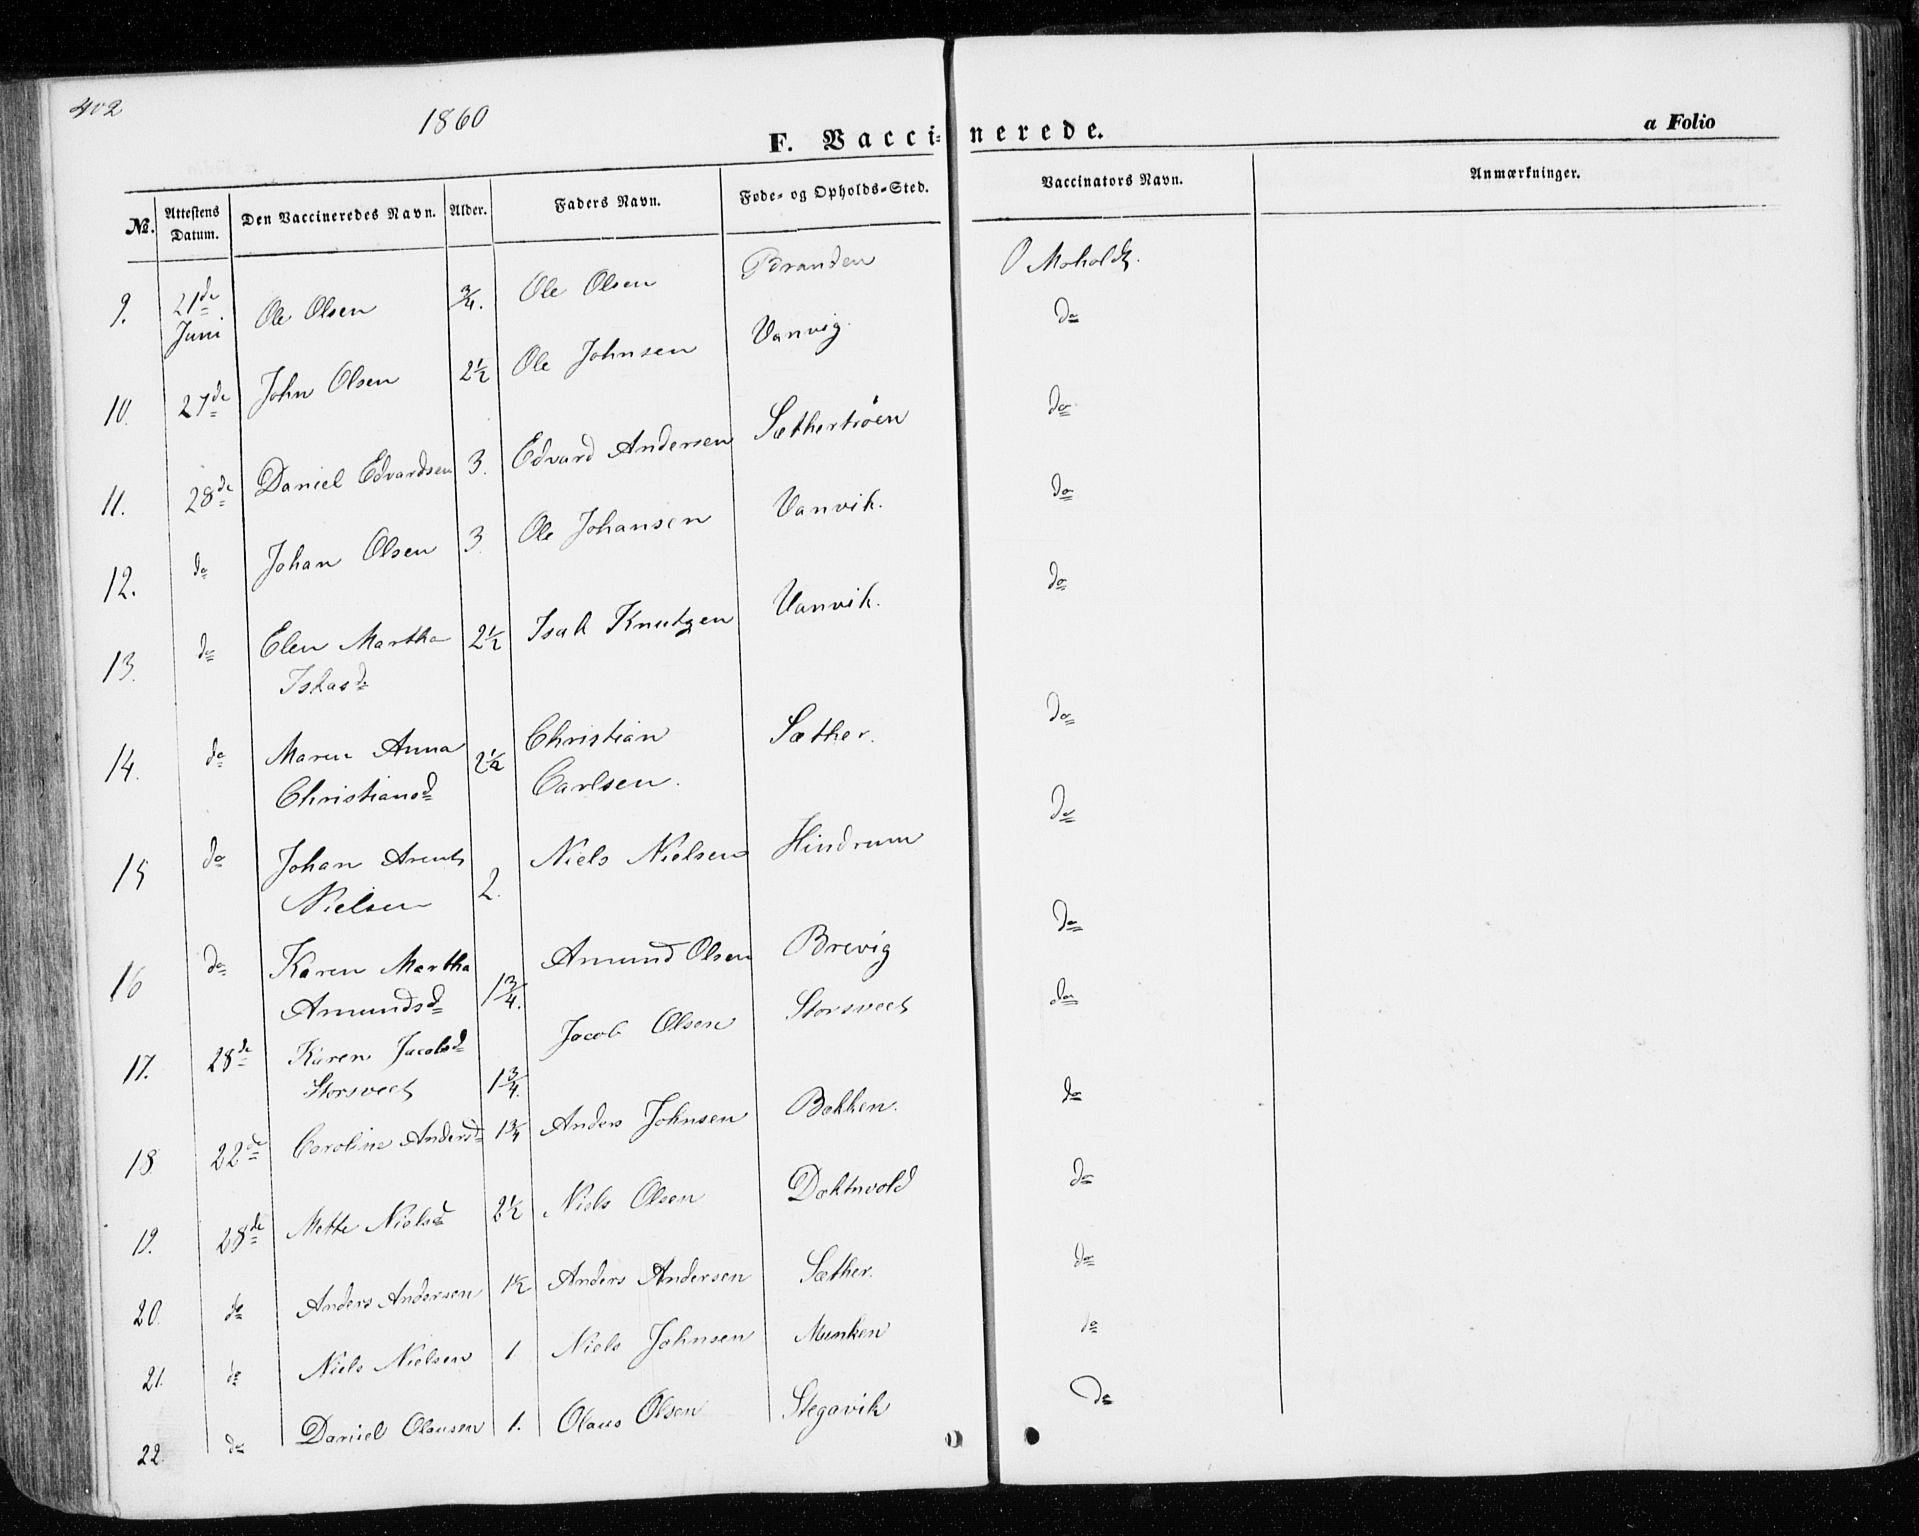 402
1860
F. Vaccinerede.
a Folio
№. Attestens Datum. Den Vaccineredes Navn. Alder. Faders Navn. Føde- og Opholds-Sted. Vaccinators Navn. Anmærkninger.
9. 21de Juni Ole Olsen 3/4. Ole Olsen Branden O Moholdt.
10. 27de John Olsen 2½ Ole Johnsen Vanvig. do
11. 28de Daniel Edvardsen 3. Edvard Andersen Sæthertrøen do
12. do Johan Olsen 3. Ole Johansen Vanvik. do
13. do Elen Martha 2½ Isak Knutzen Vanvik. do
Isaksd
14. do Maren Anna 2½ Christian Sæther. do
Christiansd Carlsen.
15 do Johan Arent 2. Niels Nielsen Hindrum do
Nielsen
16 do Karen Martha 1¾. Amund Olsen Brevig do
Amundsd
17. 28de Karen Jacobsd 1¾. Jacob Olsen Storsveet do
Storsveet
18 22de Caroline Andersd 1¾ Anders Johnsen Bakken. do
19. 28de Mette Nielsd 2½ Niels Olsen do
20. do Anders Andersen 1½ Anders Andersen Sæther. do
21. do Niels Nielsen 1. Niels Johnsen Munken do
22. do Daniel Olausen 1. Olaus Olsen Stegavik do